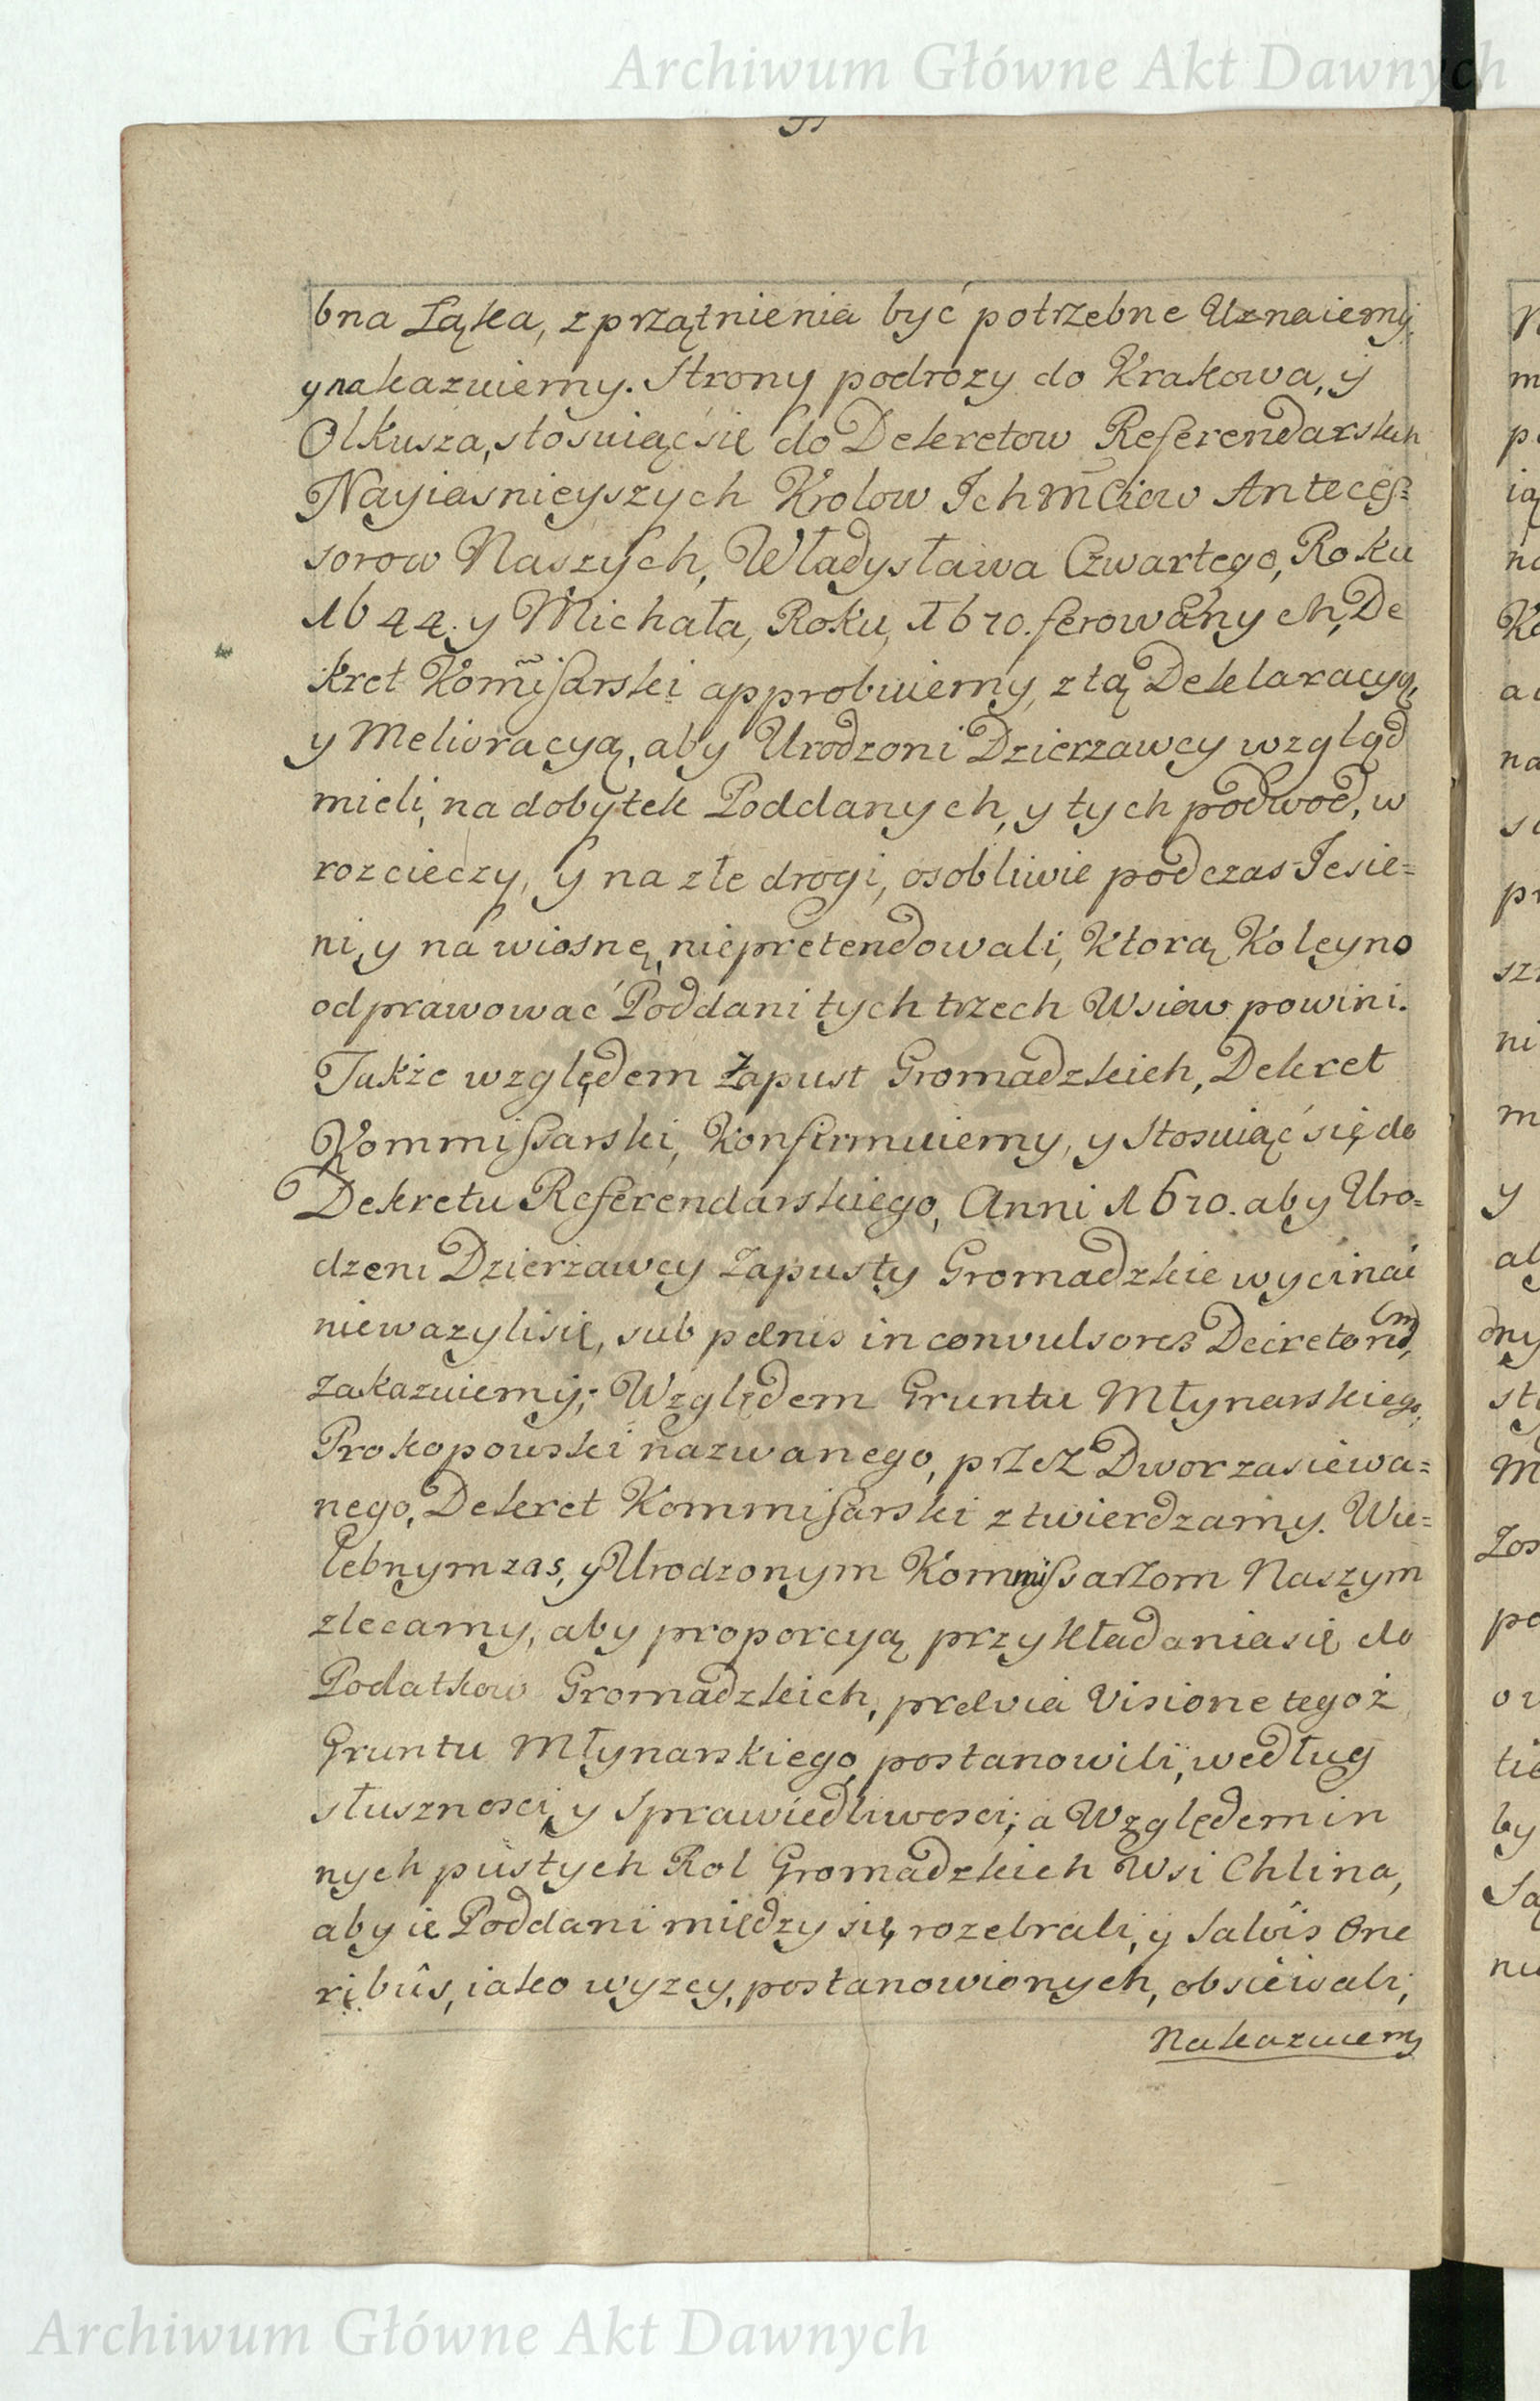 Archiwum Główne Akt Dawnych
bna Łąka, zprzątnienia być potrzebne Uznaiemy,
y nakazuiemy. Strony podrozy do Krakowa, y
Olkusza, stosuiąć się do Dekretow Referendarskich
Nayiasnieyszych Krolow Ichmciow Anteces=
sorow Naszych, Władysława Czwartego, Roku
1644. y Michała, Roku, 1670. ferowanych, De
kret Kommissarski approbuiemy, z tą Deklaracyą,
y Melioracyą, aby Urodzoni Dzierzawcy wzgląd
mieli, na dobytek Poddanych, y tych podwod, w
rozcieczy, y na złe drogi, osobliwie podczas Iesie=
ni, y na wiosnę, niepretendowali, Ktorą Koleyno
odprawować Poddani tych trzech Wsiow powini.
Także względem Zapust Gromadzkich, Dekret
Kommissarski, Konfirmuiemy, y Stosuiąć się do
Dekretu Referendarskiego, Anni 1670. aby Uro=
dzeni Dzierzawcy Zapusty Gromadzkie wycinać
niewazyli się, sub pœnis in convulsores Decretorum,
zakazuiemy; Względem Gruntu Młynarskiego,
Prokopowski nazwanego, przez Dwor zasiewa=
nego, Dekret Kommissarski ztwierdzamy. Wie=
lebnym zas, y Urodzonym Kommissarzom Naszym
zlecamy, aby proporcyą przykładania się do
Podatkow Gromadzkich, prævia Visione tegoż
Gruntu Młynarskiego, postanowili, według
słusznosci, y Sprawiedliwosci; a Względem in
nych pustych Rol Gromadzkich Wsi Chlina,
aby ie Poddani między się rozebrali, y Salvis One
ribûs, iako wyzey, postanowionych, obsiewali;
Nakazuiemy
Archiwum Główne Akt Dawnych